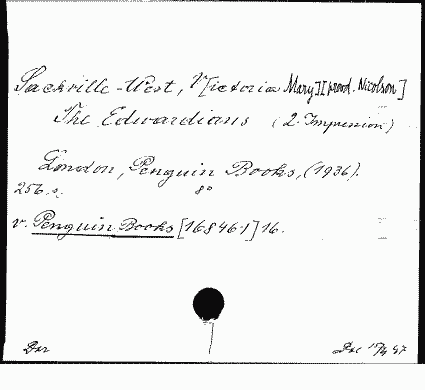 Sackville-West, V[ictoria Mary] prowd. Nicolson]
The Edwardians (2. Impression)
London, Penguin Books, (1936).
256 s. 8°
v. Penguin Books [16846·1] 16.
Dar